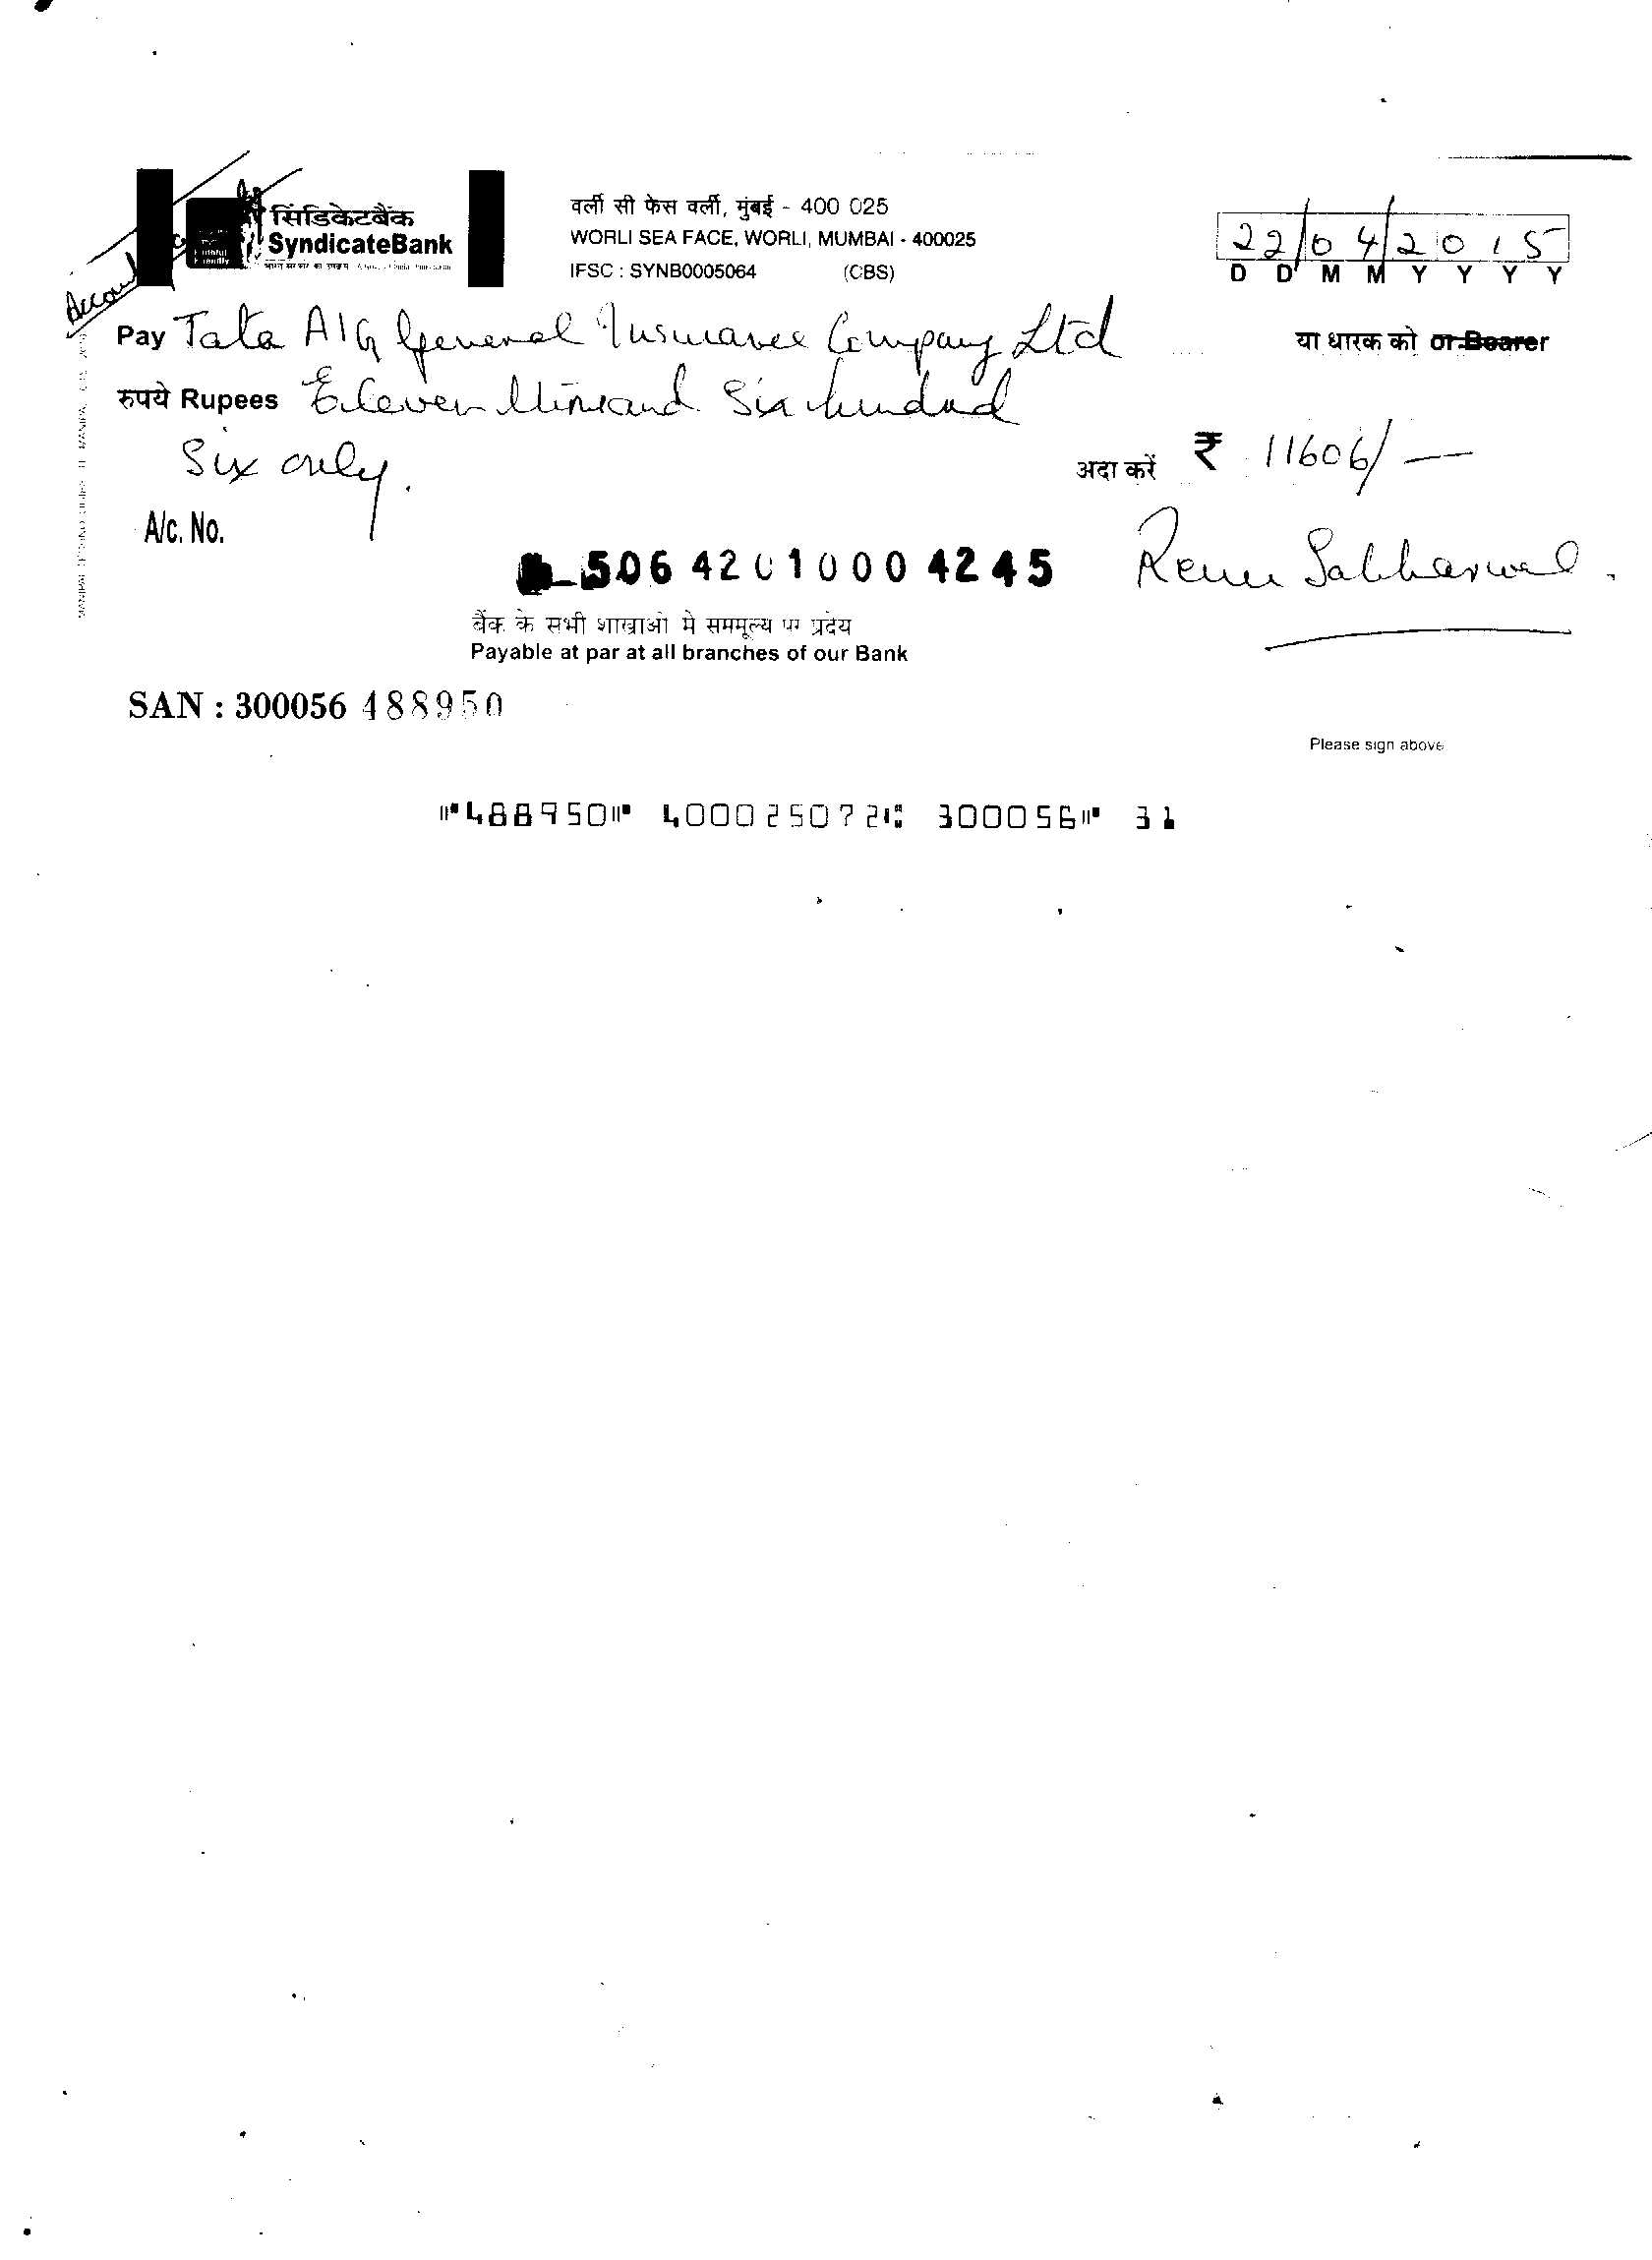 सिंडिकेटबैंक
SyndicateBank
वर्ली सी फेस वर्ली, मुंबई - 400 025
WORLI SEA FACE, WORLI, MUMBAI - 400025
IFSC : SYNB0005064 (CBS)
22/04/2015
D D M M Y Y Y Y
Pay Tata AIG General Insurance Company Ltd या धारक को or Bearer
रुपये Rupees Eleven thousand Six hundred
Six only.
अदा करें ₹ 11606/-
A/c. No.
50642010004245
Renu Sabharwal.
बैंक के सभी शाखाओं में सममूल्य पर प्रदेय
Payable at par at all branches of our Bank
SAN : 300056 488950
Please sign above
⑈488950⑈ 400025072⑆ 300056⑈ 31